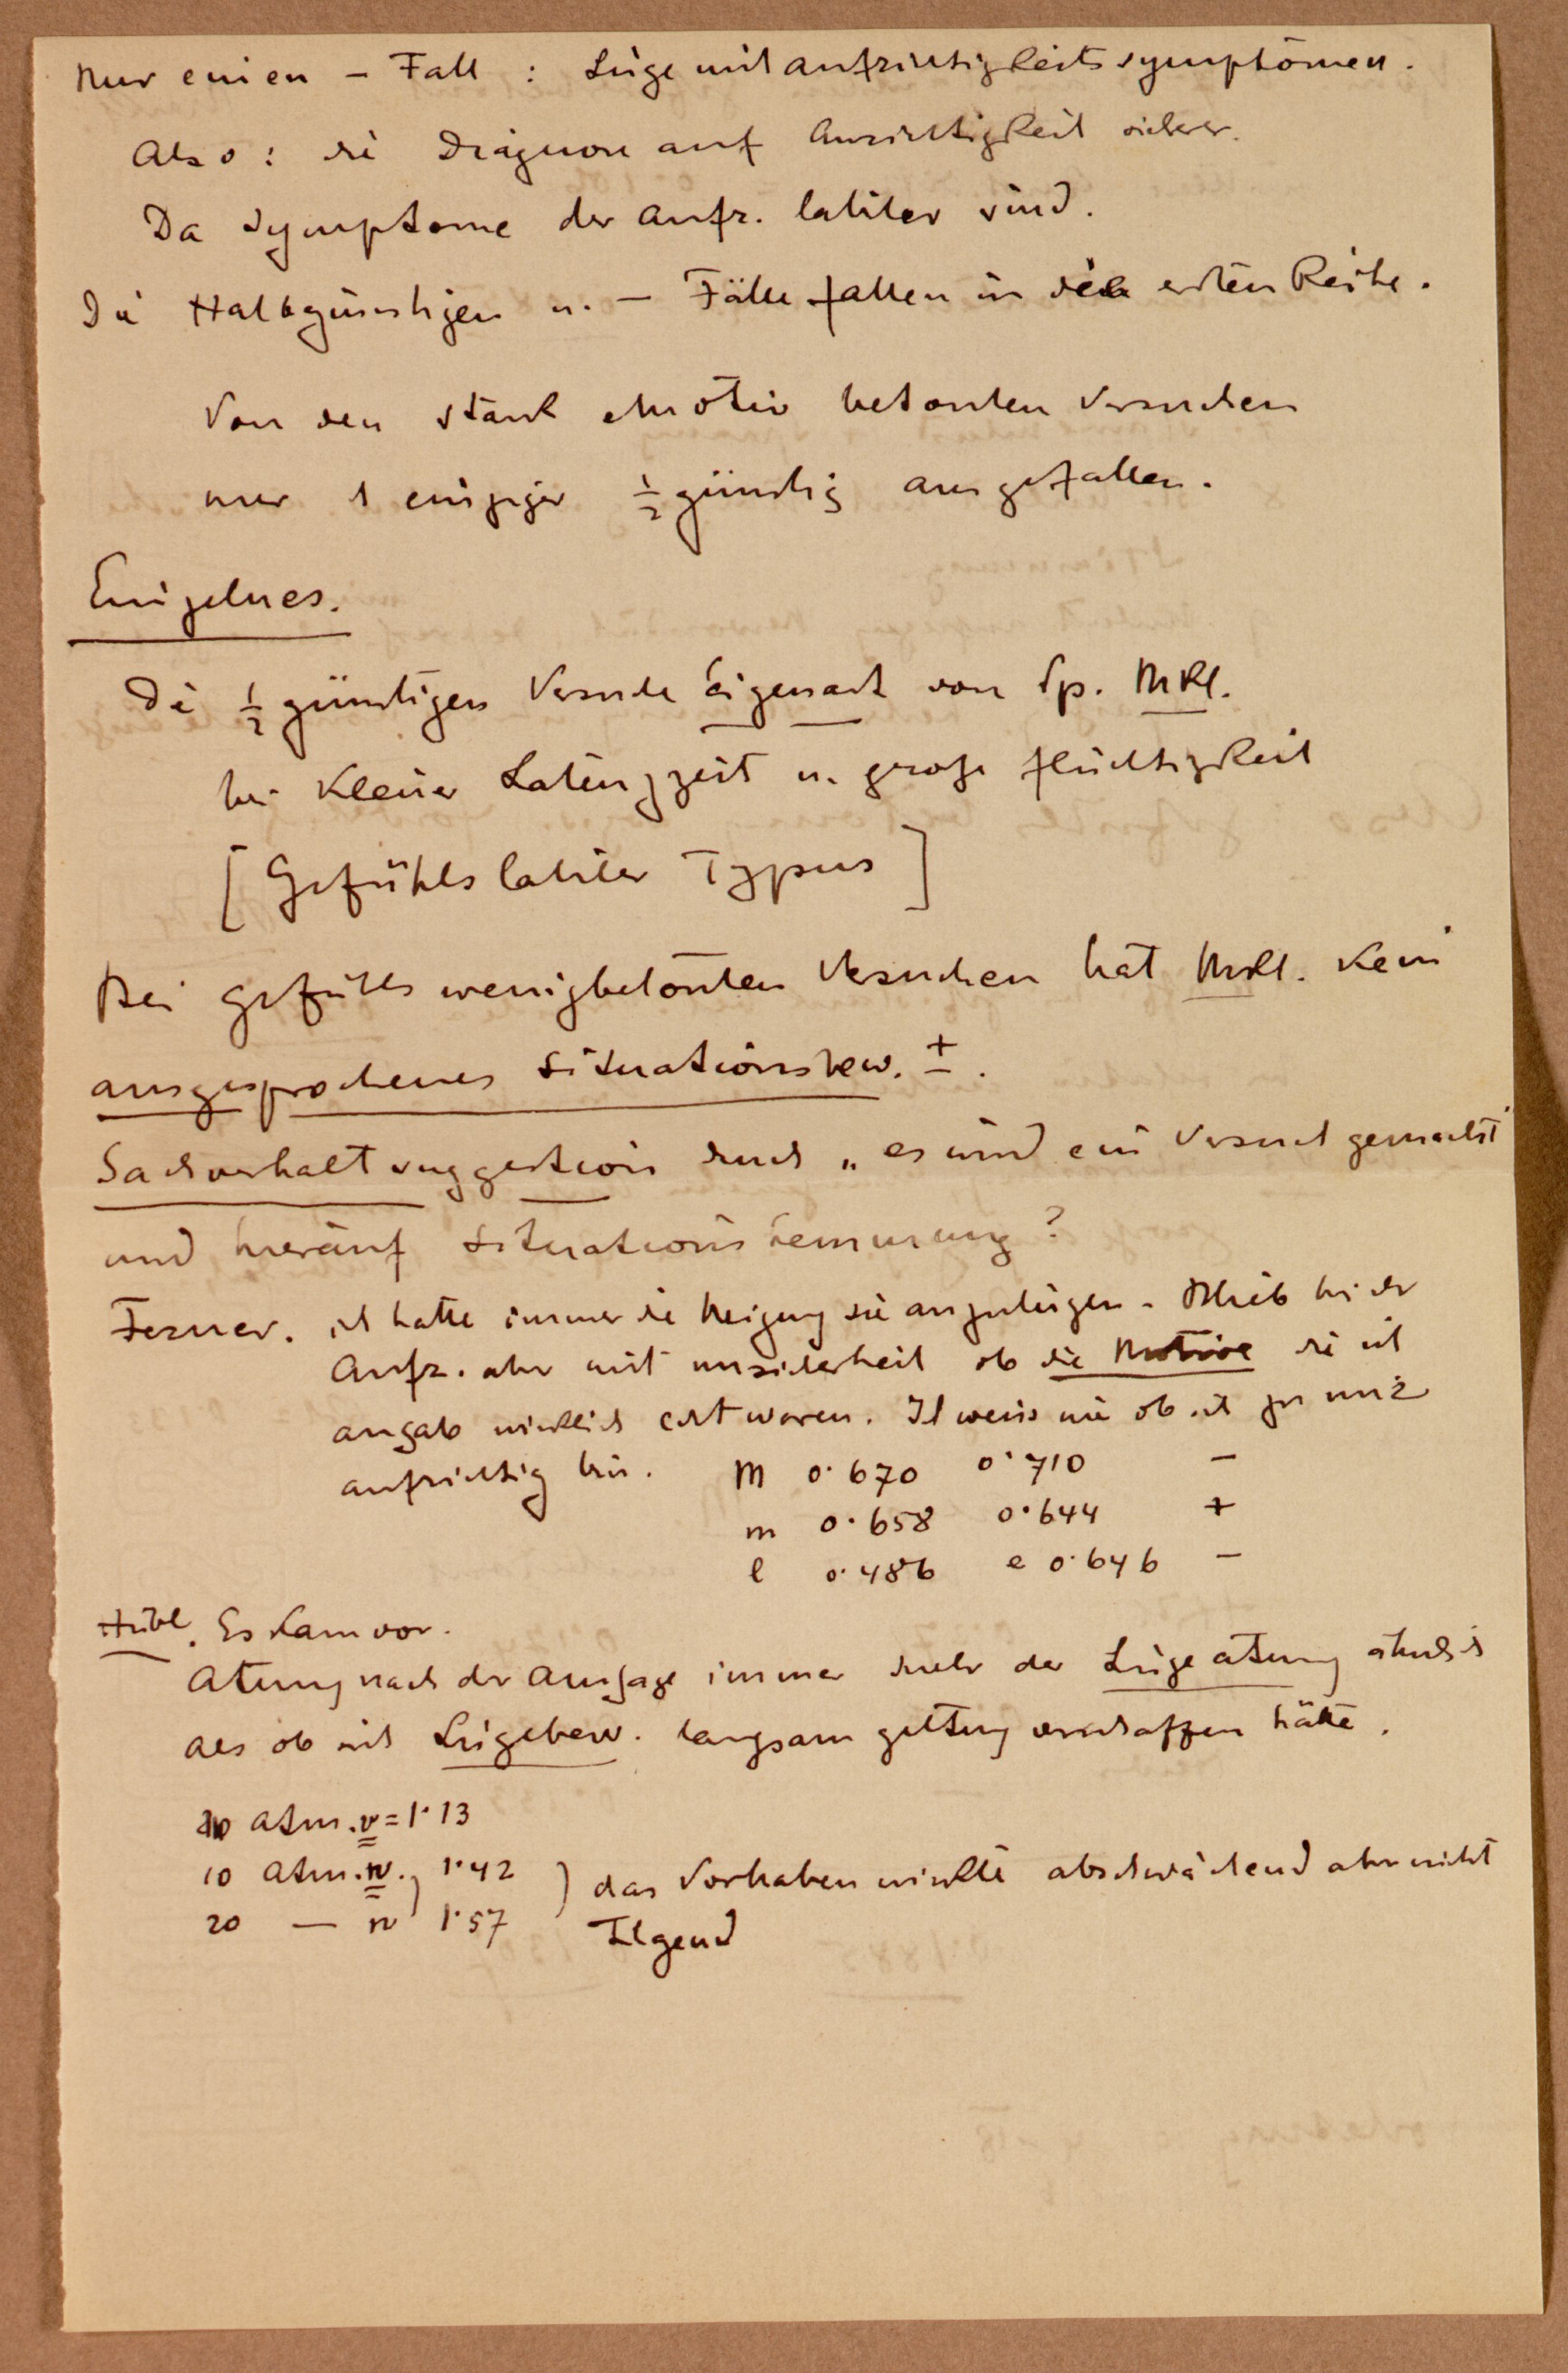 Nur einen – Fall : Lüge mit Aufrichtigkeitssymptomen.
Also : die Diagnose auf Aufrichtigkeit sicherer.
Da Symptome der Aufr. labiler sind.
Die Halbgünstigen u. – Fälle fallen in die ersten Reihe.
Von den stark emotiv betonten Versuchen
nur 1 einziger ½ günstig ausgefallen.
Einzelnes.
Die ½ günstigen Versuche Eigenart von Vp. Mkl.
bei kleiner Latenzzeit u. große Flüchtigkeit
[Gefühlslabiler Typus]
Bei gefühls wenigbetonten Versuchen hat Mkl. kein
ausgesprochenes Situationsbew. ±.
Sachverhaltsuggestion durch „es wird ein Versuch gemacht"
und hierauf Situationshemmung ?
Ferner. ich hatte immer die Neigung sie anzulügen. Blieb bei der
Aufr. aber mit Unsicherheit ob die Motive die ich
angab wirklich echt waren. Ich weiss nie ob ich zu mir
aufrichtig bin. M 0·670 0·710 –
m 0·658 0·644 +
l 0·486 e 0·646 –
Hübl. Es kam vor.
Atmung nach der Aussage immer mehr der Lügeatmung ähnlich
als ob sich Lügebew. langsam geltung verschaffen hätte.
10 Atm. v = 1·13
10 Atm. n. 1·42 ) das Vorhaben wirkte abschwächend aber nicht
20 — n 1·57 Tilgend